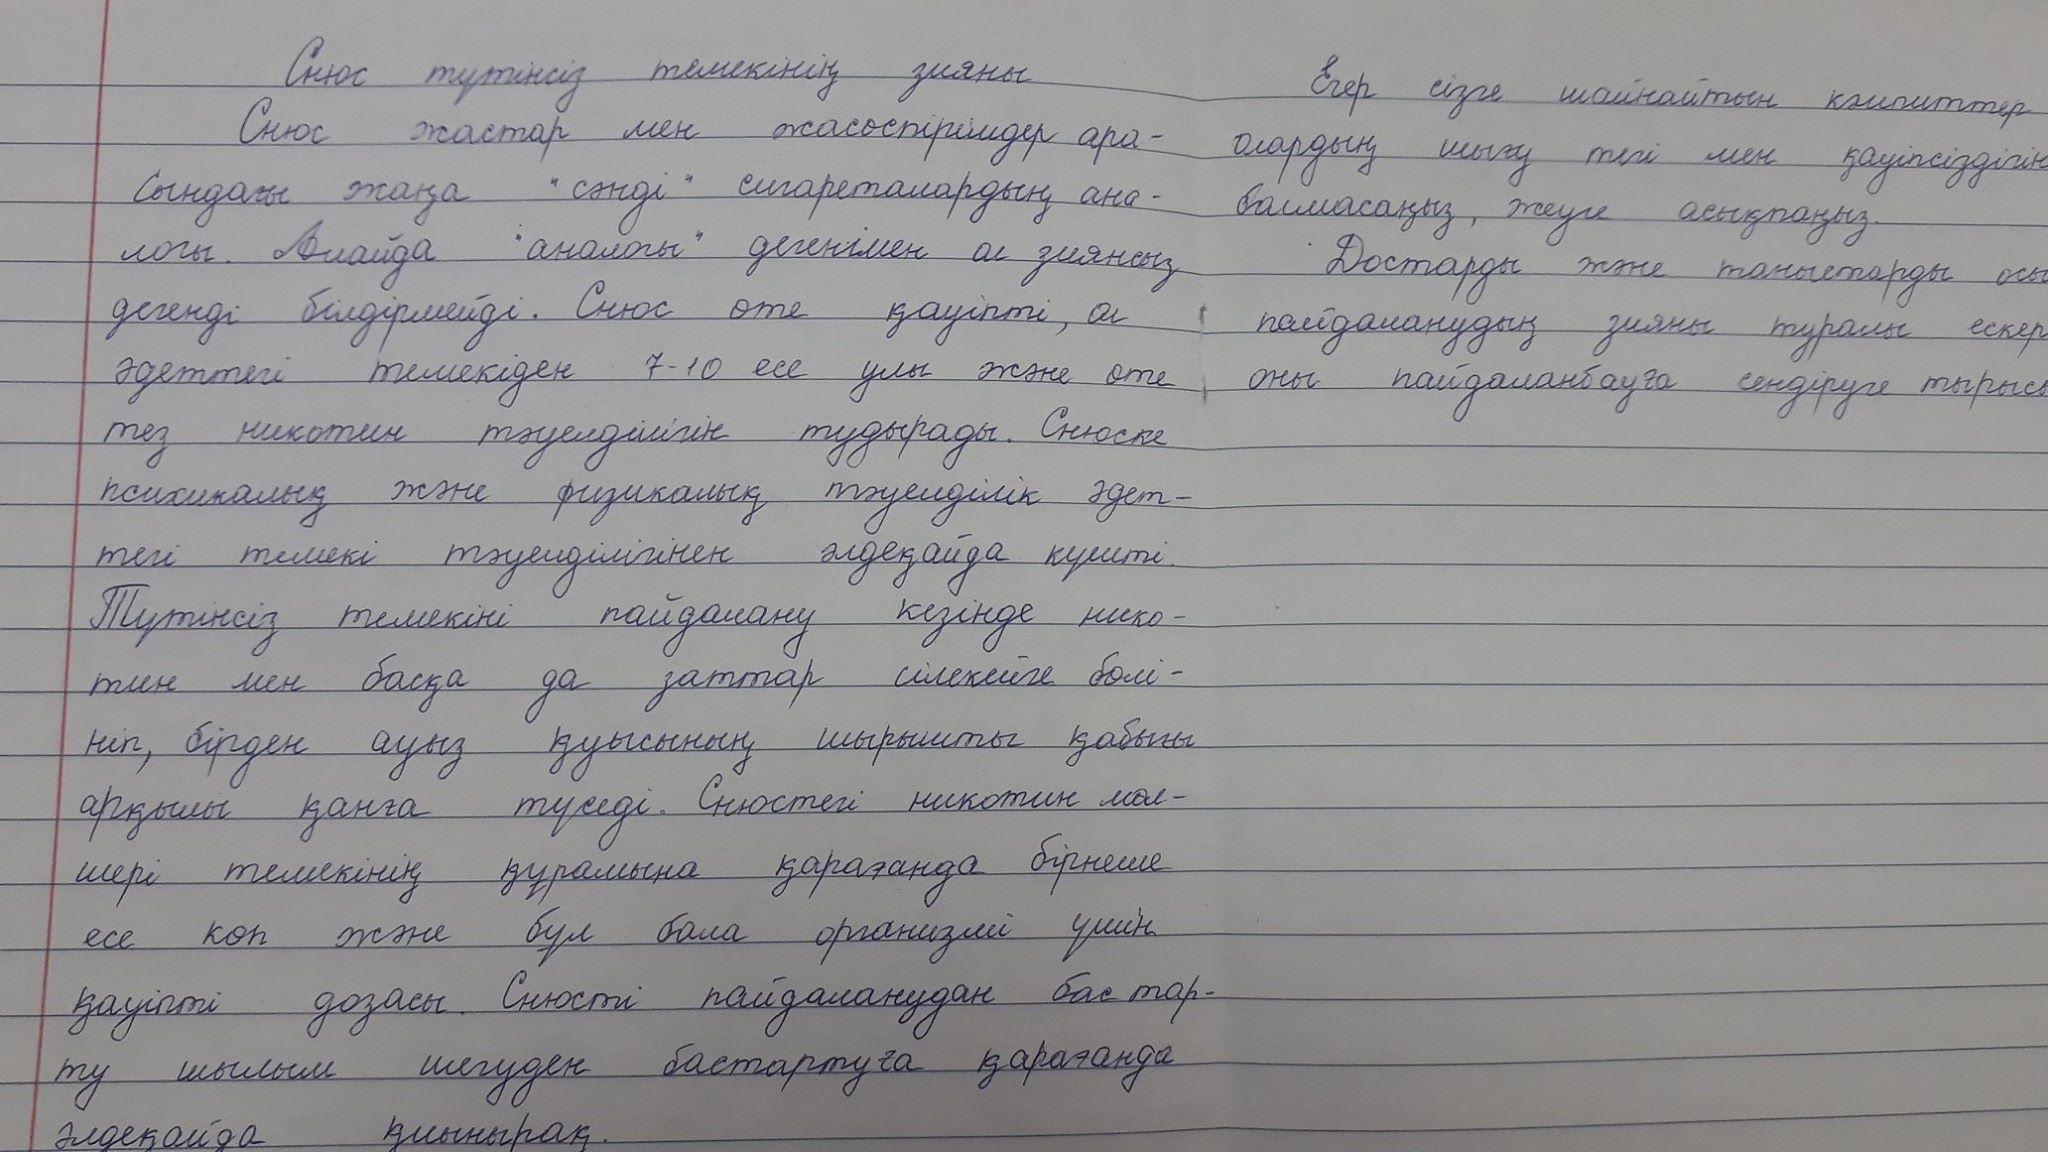 Снюс түтінсіз темекінің зияны
Снюс жастар мен жасөспірімдер ара-
сындағы жаңа "сәнді" сигареталардың ана-
логы. Алайда "аналогы" дегенімен ол зиянсыз
дегенді білдірмейді. Снюс өте қауіпті, ол
әдеттегі темекіден 7-10 есе улы және өте
тез никотин тәуелділігін тудырады. Снюске
психикалық және физикалық тәуелділік әдет-
тегі темекі тәуелділігінен әлдеқайда күшті.
Түтінсіз темекіні пайдалану кезінде нико-
тин мен басқа да заттар сілекейге бөлі-
ніп, бірден ауыз қуысының шырышты қабығы
арқылы қанға түседі. Снюстегі никотин мөл-
шері темекінің құрамына қарағанда бірнеше
есе көп және бұл бала организмі үшін
қауіпті дозасы. Снюсті пайдаланудан бас тар-
ту шылым шегуден бастартуға қарағанда
әлдеқайда қиынырақ.
Егер сізге шайнайтын кәмпиттер
олардың шығу тегі мен қауіпсіздігін
балмасаңыз, жеуге асықпаңыз.
Достарды және таныстарды осы
пайдаланудың зияны туралы ескер
оны пайдаланбауға сендіруге тырыс